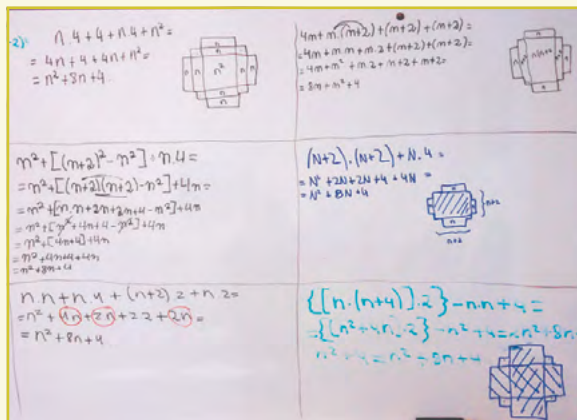 n.4+4+n.4+n²=
=4n+4+4n+n²=
=n²+8n+4
n²
4n+n.(n+2)+(n+2)+(n+2)=
=4n+n.n+n.2+(n+2)+(n+2)=
=4n+n²+n.2+n+2+n+2=
=8n+n²+4
n²+[(n+2)²-n²]+n.4=
=n²+[(n+2)(n+2)-n²]+4n=
=n²+[n.n+2n+2n+4-n²]+4n
=n²+[n²+4n+4-n²]+4n
=n²+[4n+4]+4n
=n²+4n+4+4n
=n²+8n+4
(N+2).(N+2)+N.4=
=N²+2N+2N+4+4N=
=N²+8N+4
n
n+2
n+2
n.n+n.4+(n+2).2+n.2=
=n²+4n+2n+2.2+2n=
=n²+8n+4
{[n.(n+4)].2}-n.n+4=
={[n²+4n].2}-n²+4=2n²+8n-
n²+4=n²+8n+4